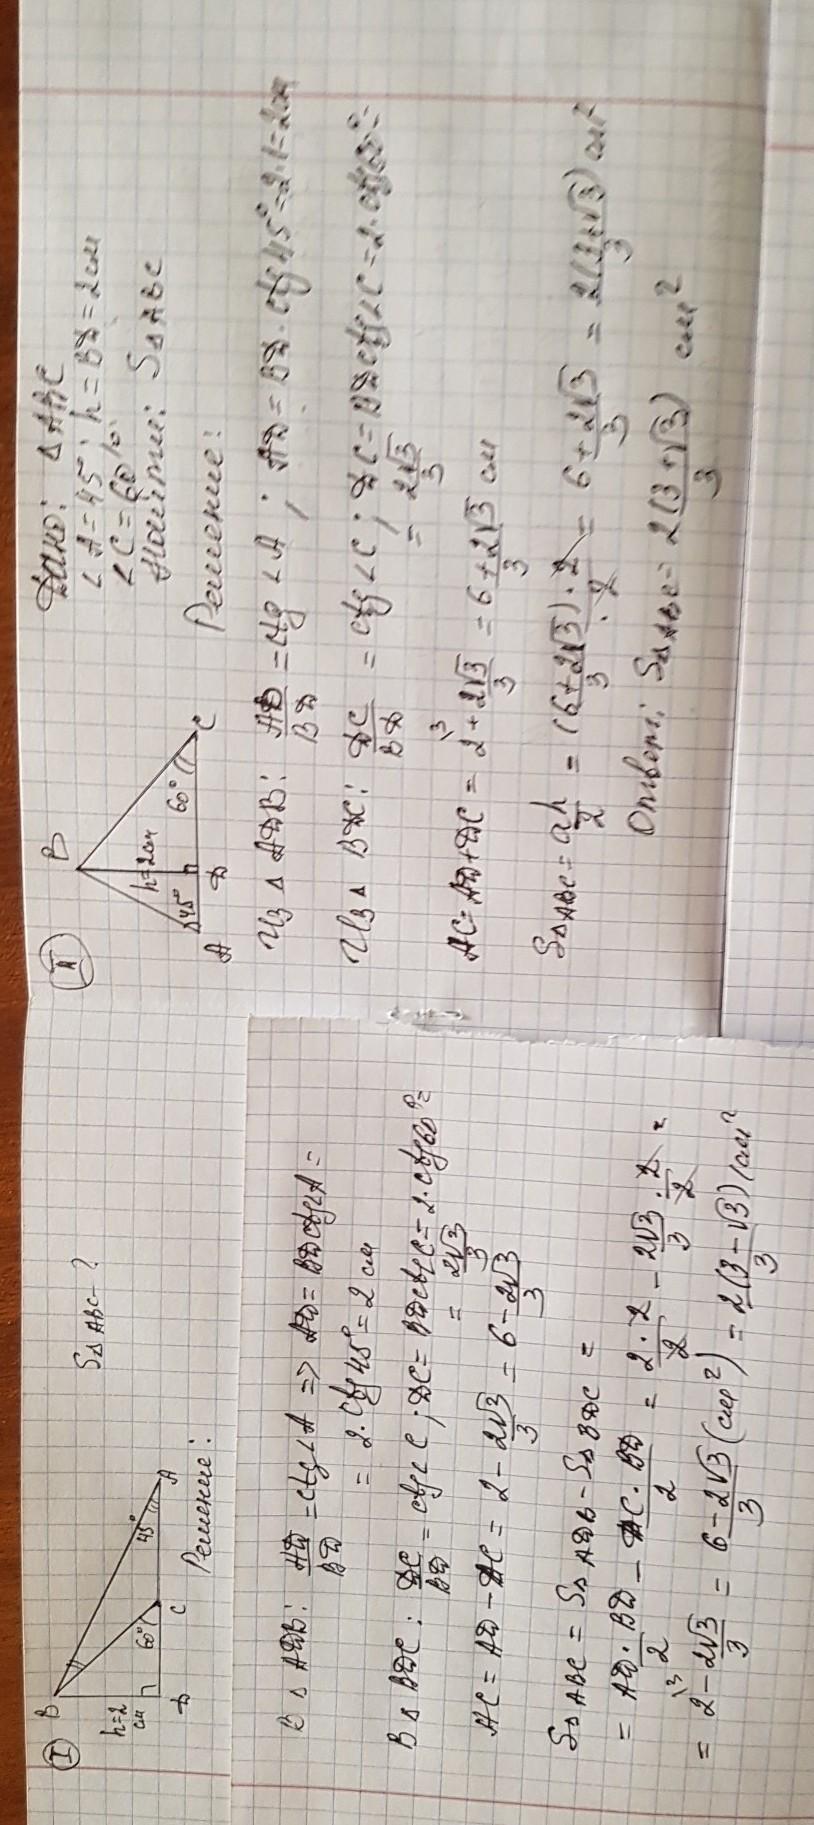 I
B
h=2
см
D
60°
C
45°
A
S△ABC-?
Решение:
В △ ADB: AD/BD = ctg∠A => AD = BD ctg∠A =
= 2·ctg 45° = 2 см
В △ BDC: DC/BD = ctg∠C; DC = BD ctg∠C = 2·ctg60° =
= 2√3/3
AC = AD - DC = 2 - 2√3/3 = 6-2√3/3
S△ABC = S△ADB - S△BDC =
= AD·BD/2 - DC·BD/2 = 2·2/2 - 2√3/3 · 2/2 =
= 2 - 2√3/3 = 6-2√3/3 (см²) = 2(3-√3)/3 (см²
II
B
h=2см
45°
60°
A
D
C
Дано: △ABC
∠A=45°; h=BD=2см
∠C=60°
Найти: S△ABC
Решение:
Из △ ADB: AD/BD = ctg∠A; AD = BD·ctg45° = 2·1 = 2см
Из △ BDC: DC/BD = ctg∠C; DC = BD ctg∠C = 2·ctg60° =
= 2√3/3
AC = AD+DC = 2 + 2√3/3 = 6+2√3/3 см
S△ABC = ah/2 = (6+2√3)·2/3·2 = 6+2√3/3 = 2(3+√3)/3 см²
Ответ: S△ABC = 2(3+√3)/3 см²